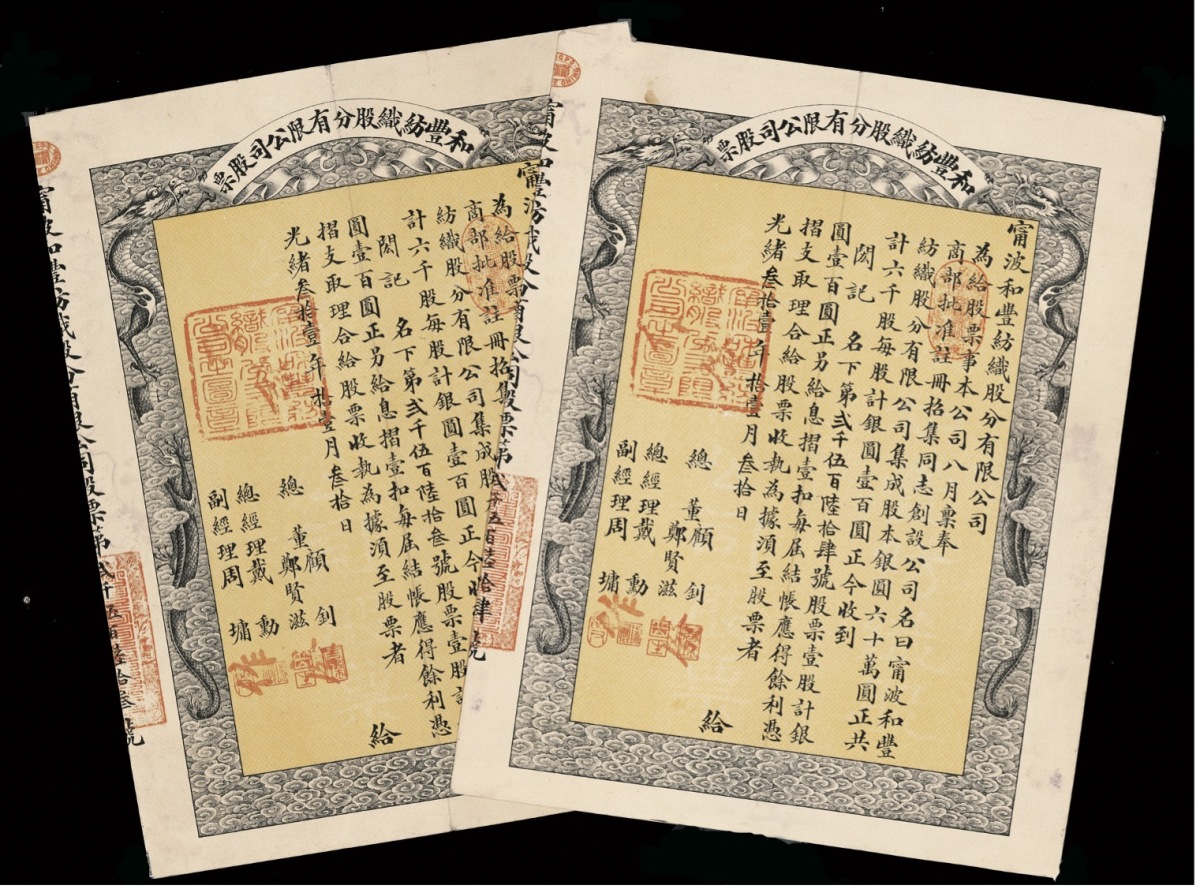 和豐紡織股分有限公司股票
甯波和豐紡織股分有限公司
為給股票事本公司八月稟奉
商部批准註冊招集同志創設公司名曰甯波和豐
紡織股分有限公司集成股本銀圓六十萬圓正共
計六千股每股計銀圓壹百圓正今收到
閎記 名下第弍千伍百陸拾肆號股票壹股計銀
圓壹百圓正另給息摺壹扣每屆結帳應得餘利憑
摺支取理合給股票收執為據須至股票者
光緒叁拾壹年拾壹月叁拾日
總董顧 釗
鄭賢滋
總經理戴 勳
副經理周 墉
給
甯波和豐紡織股分有限公司股票第弍千五百陸拾肆號
和豐紡織股分有限公司股票
甯
為給股票
商部批准註冊招
紡織股分有限公司集成股
計六千股每股計銀圓壹百圓正今收
閎記 名下第弍千伍百陸拾叁號股票壹股計
圓壹百圓正另給息摺壹扣每屆結帳應得餘利憑
摺支取理合給股票收執為據須至股票者
光緒叁拾壹年拾壹月叁拾日
總董顧 釗
鄭賢滋
總經理戴 勳
副經理周 墉
給
甯波和豐紡織股分有限公司股票第弍千五百陸拾叁號